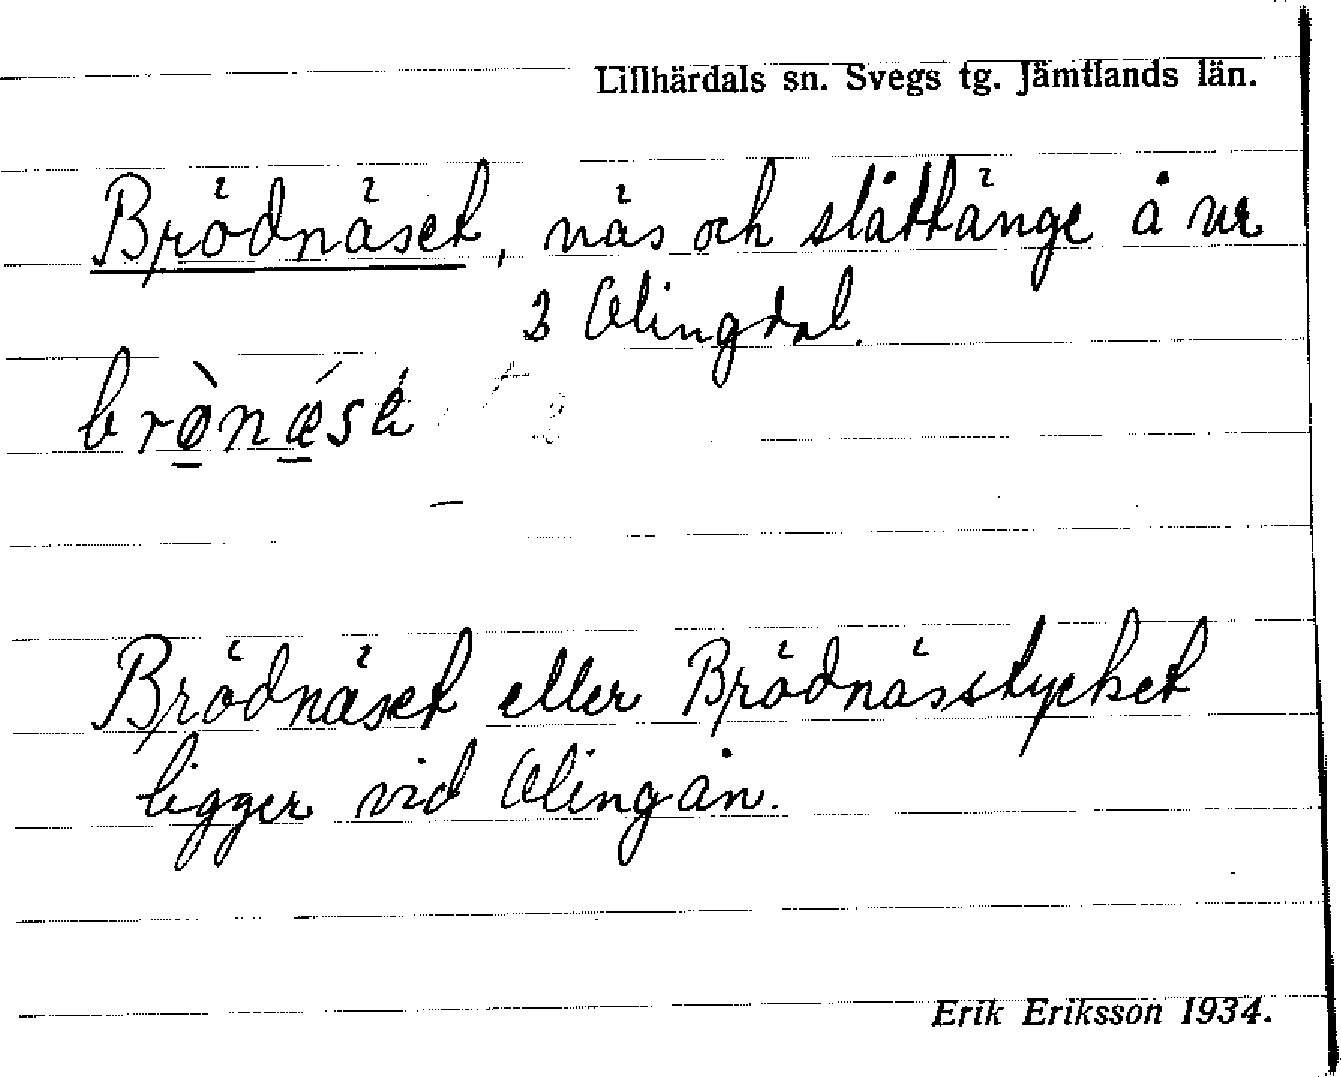 Lillhärdals sn. Svegs tg. Jämtlands län.
Brödnäset, näs och slåttänge å nr
3 Olingdal.
brø̀nǽsè
Brödnäset eller Brödnässtycket
ligger vid Olingån.
Erik Eriksson 1934.